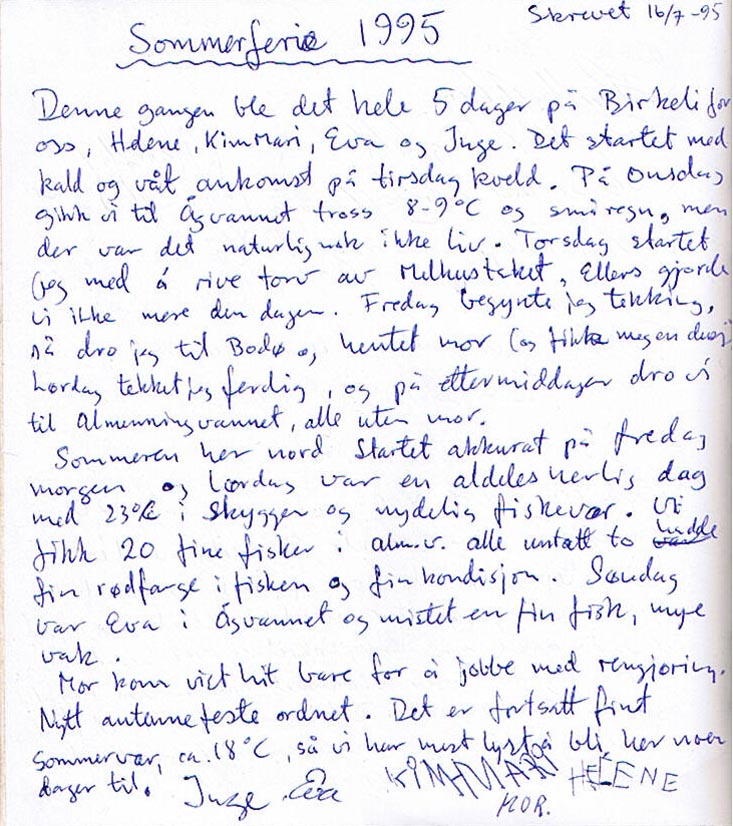 Skrevet 16/7-95
Sommerferie 1995
Denne gangen ble det hele 5 dager på Birkeli for
oss, Helene, Kim Mari, Eva og Inge. Det startet med
kald og våt ankomst på tirsdag kveld. På Onsdag
gikk vi til Ågvannet tross 8-9°C og småregn, men
der var det naturlig nok ikke liv. Torsdag startet
jeg med å rive torv av Melhustaket, Ellers gjorde
vi ikke mere den dagen. Fredag begynte jeg tekking,
så dro jeg til Bodø og hentet mor (og fikk meg en
Lørdag tekket jeg ferdig, og på ettermiddagen dro vi
til Almenningsvannet, alle uten mor.
Sommeren her nord startet akkurat på fredag
morgen og Lørdag var en aldeles herlig dag
med 23°C i skyggen og nydelig fiskevær. Vi
fikk 20 fine fisker i alm.v. alle untatt to hadde
fin rødfarge i fisken og fin kondisjon. Søndag
var Eva i Ågvannet og mistet en fin fisk, mye
vak.
Mor kom visst hit bare for å jobbe med rengjøring.
Nytt antennefeste ordnet. Det er fortsatt fint
Sommervær, ca. 18°C, så vi har mest lyst å bli her noen
dager til. Inge Eva KIM MARI HELENE
MOR.